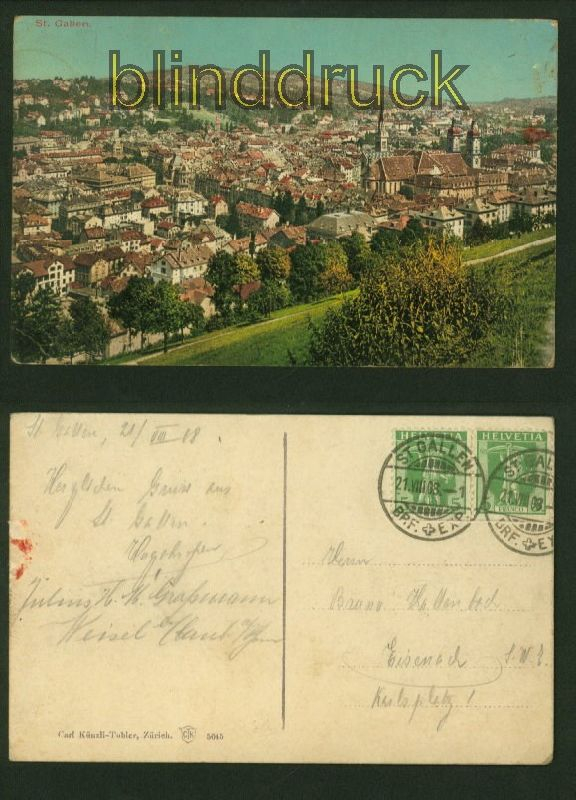 St. Gallen.
blinddruck
St. Gallen, 21/VIII 08
Herzlichen Gruss aus
St. Gallen.
Julius H. M. Großmann
Herrn
Bruno
Eisenach
Karlsplatz 1
HELVETIA HELVETIA
ST. GALLEN
21.VIII.08
BRF. EXP.
ST. GALLEN
21.VIII.08
BRF. EX
Carl Künzli-Tobler, Zürich. CTK 5045